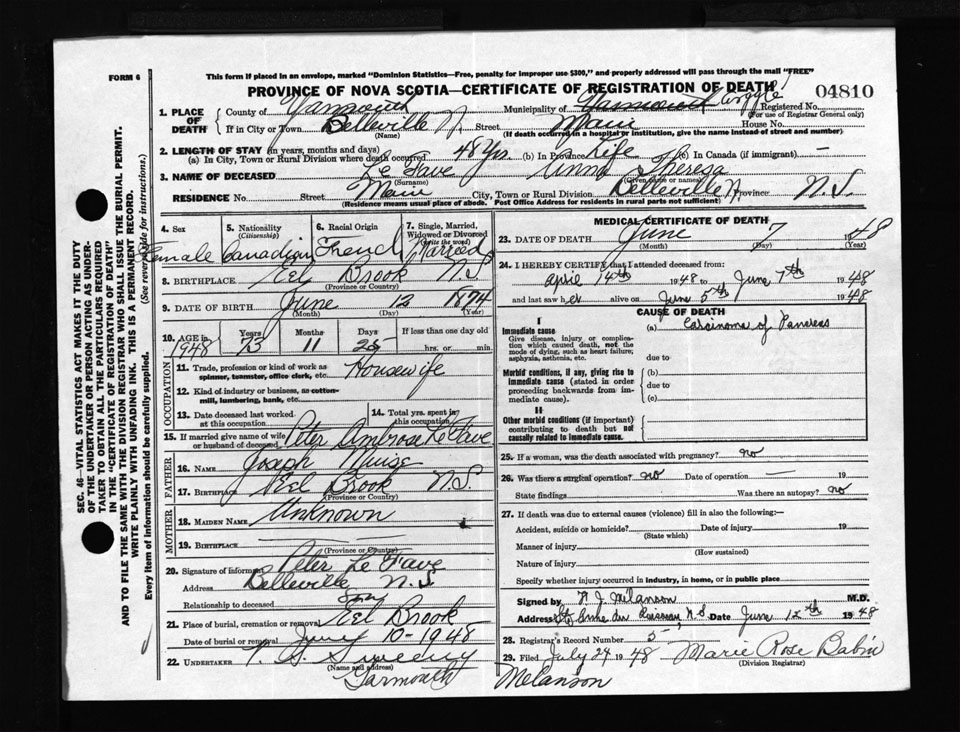 FORM 6
This form if placed in an envelope, marked "Dominion Statistics—Free, penalty for improper use $300," and properly addressed will pass through the mail "FREE"
PROVINCE OF NOVA SCOTIA—CERTIFICATE OF REGISTRATION OF DEATH
04810
1. PLACE OF DEATH County of Yarmouth Municipality of Yarmouth Argyle Registered No. (For use of Registrar General only)
If in City or Town Belleville N. (Name) Street Main House No.
(If death occurred in a hospital or institution, give the name instead of street and number)
2. LENGTH OF STAY (in years, months and days)
(a) In City, Town or Rural Division where death occurred 48 Yrs. (b) In Province Life (c) In Canada (if immigrant) —
3. NAME OF DECEASED Le Fave (Surname) Anna Theresa (Given name or names)
RESIDENCE No. Street Main City, Town or Rural Division Belleville N. Province N.S.
(Residence means usual place of abode. Post Office Address for residents in rural parts not sufficient)
4. Sex Female
5. Nationality (Citizenship) Canadian
6. Racial Origin French
7. Single, Married, Widowed or Divorced (Write the word) Married
8. BIRTHPLACE Eel Brook N.S. (Province or Country)
9. DATE OF BIRTH June (Month) 12 (Day) 1874 (Year)
10. AGE in 1948 Years 73 Months 11 Days 25 If less than one day old hrs. or min.
OCCUPATION
11. Trade, profession or kind of work as spinner, teamster, office clerk, etc. Housewife
12. Kind of industry or business, as cotton-mill, lumbering, bank, etc.
13. Date deceased last worked at this occupation
14. Total yrs. spent in this occupation
15. If married give name of wife or husband of deceased Peter Ambrose LeFave
FATHER
16. NAME Joseph Muise
17. BIRTHPLACE Eel Brook N.S. (Province or Country)
MOTHER
18. MAIDEN NAME Unknown
19. BIRTHPLACE — — (Province or Country)
20. Signature of informant Peter Le Fave
Address Belleville N.S.
Relationship to deceased
21. Place of burial, cremation or removal Eel Brook
Date of burial or removal June 10-1948
22. UNDERTAKER Sweeny
(Name and address)
Yarmouth
MEDICAL CERTIFICATE OF DEATH
23. DATE OF DEATH June (Month) 7 (Day) 1948 (Year)
24. I HEREBY CERTIFY that I attended deceased from:
April 14th 1948 to June 7th 1948
and last saw her alive on June 5th 1948
CAUSE OF DEATH
I
Immediate cause
Give disease, injury or complication which caused death, not the mode of dying, such as heart failure, asphyxia, asthenia, etc.
(a) Carcinoma of Pancreas
due to
Morbid conditions, if any, giving rise to immediate cause (stated in order proceeding backwards from immediate cause).
(b)
due to
(c)
II
Other morbid conditions (if important) contributing to death but not causally related to immediate cause.
25. If a woman, was the death associated with pregnancy? no
26. Was there a surgical operation? no Date of operation — 19
State findings Was there an autopsy? no
27. If death was due to external causes (violence) fill in also the following:—
Accident, suicide or homicide? (State which) Date of injury 19
Manner of injury (How sustained)
Nature of injury
Specify whether injury occurred in industry, in home, or in public place
Signed by Melanson M.D.
Address Ste Anne du Ruisseau, N.S. Date June 12th 1948
28. Registrar's Record Number 5
29. Filed July 24 1948 Marie Rose Babin
(Division Registrar)
Melanson
SEC. 46—VITAL STATISTICS ACT MAKES IT THE DUTY
OF THE UNDERTAKER OR PERSON ACTING AS UNDER-
TAKER TO OBTAIN ALL THE PARTICULARS REQUIRED
IN THE "CERTIFICATE OF REGISTRATION OF DEATH"
AND TO FILE THE SAME WITH THE DIVISION REGISTRAR WHO SHALL ISSUE THE BURIAL PERMIT.
WRITE PLAINLY WITH UNFADING INK. THIS IS A PERMANENT RECORD.
Every item of information should be carefully supplied. (See reverse side for instructions.)